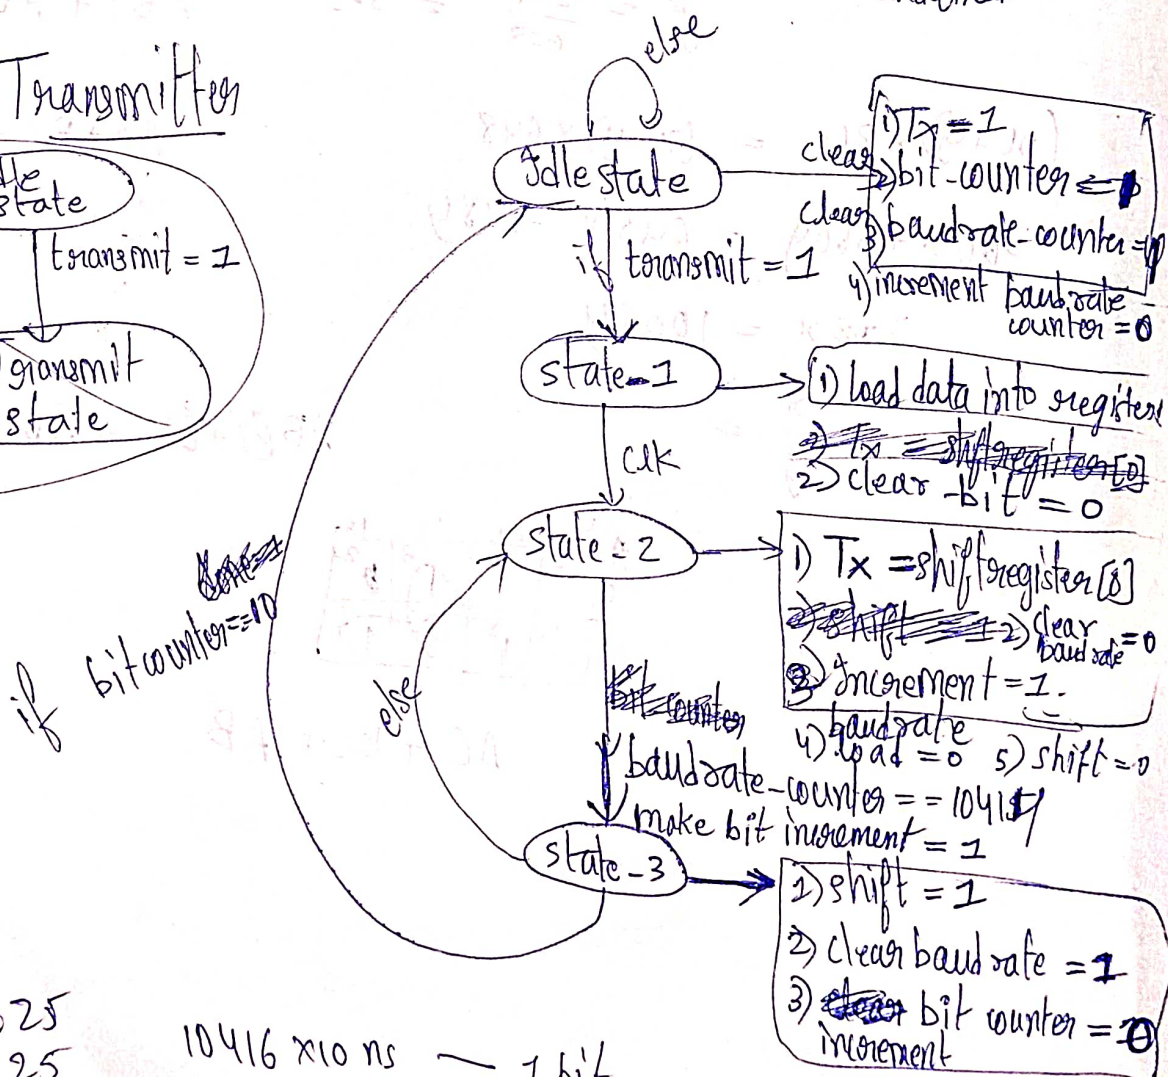 Transmitter
state
transmit = 1
state
else
Idle state
1) Tx = 1
clear
2) bit-counter =
clear
3) baudrate-counter =
4) increment baudrate
counter = 0
if transmit = 1
state-1
1) load data into register
2) Tx = shiftregister[0]
2) clear-bit = 0
clk
state-2
1) Tx = shiftregister[0]
2) shift = 1
2) clear
baudrate = 0
3) Increment = 1.
baudrate
4) load = 0
5) shift = 0
if bitcounter==10
else
bit-counter
baudrate-counter ==
make bit increment = 1
state-3
1) shift = 1
2) clear baudrate = 1
3) bit counter = 0
increment
25
25
10416 x10 ns — 1 bit